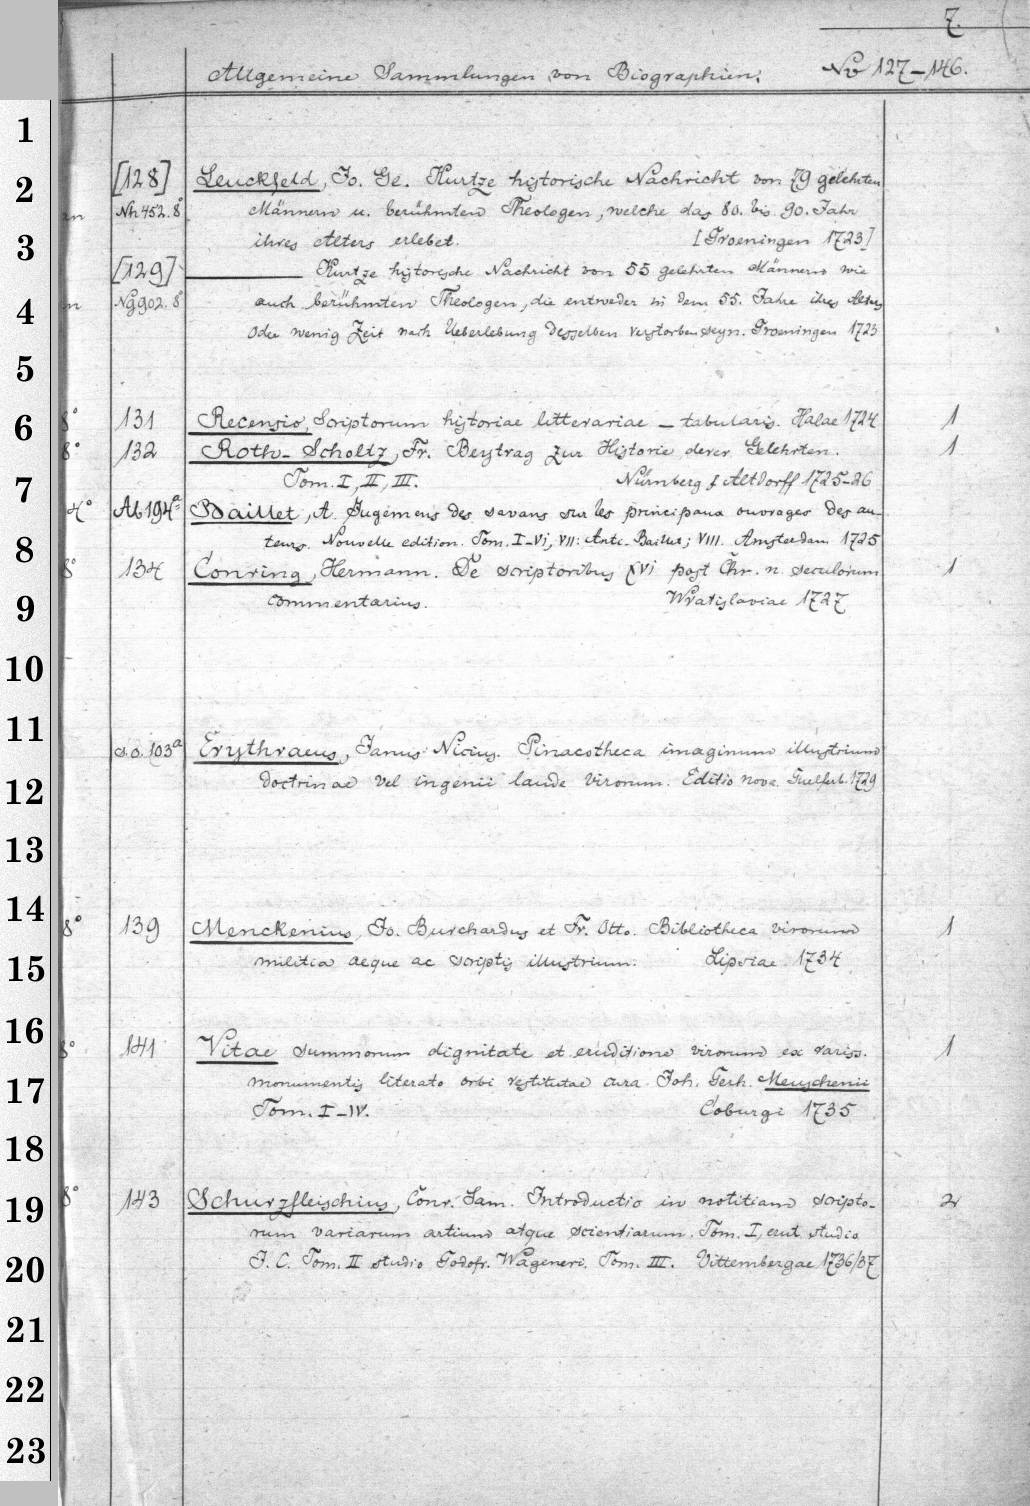 7.
Allgemeine Sammlungen von Biographien. No 127–146.
1
2 [128] Leuckfeld, Jo. Ge. Kurtze historische Nachricht von 79 gelehrten
an Nh 452. 8° Männern u. berühmten Theologen, welche das 80. bis 90. Jahr
3 ihres Alters erlebet. [Groeningen 1723]
[129] ——— Kurtze historische Nachricht von 55 gelehrten Männern wie
4 Ng 902. 8° auch berühmten Theologen, die entweder in dem 55. Jahre ihres Alters
oder wenig Zeit nach Ueberlebung desselben verstorben seyn. Groeningen 1725
5
6 8° 131 Recensio Scriptorum historiae litterariae – tabularis. Halae 1724 1
8° 132 Roth-Scholtz, Fr. Beytrag zur Historie derer Gelehrten. 1
7 Tom. I, II, III. Nürnberg & Altdorff 1725–26
4° Ab 194a Baillet, A. Jugemens des savans sur les principaux ouvrages des au-
8 teurs. Nouvelle edition. Tom. I–VI, VII: Anti-Baillet; VIII. Amsterdam 1725
8° 134 Conring, Hermann. De scriptoribus XVI post Chr. n. seculorum 1
9 commentarius. Wratislaviae 1727
10
11
s.o. 103a Erythraeus, Janus Nicius. Pinacotheca imaginum illustrium
12 doctrinae vel ingenii laude virorum. Editio nova. Guelferb. 1729
13
14
8° 139 Menckenius, Jo. Burchardus et Fr. Otto. Bibliotheca virorum 1
15 militia aeque ac scriptis illustrium. Lipsiae 1734
16
8° 141 Vitae summorum dignitate et eruditione virorum ex rariss. 1
17 monumentis literato orbi restitutae cura Joh. Gerh. Meuschenii
Tom. I–IV. Coburgi 1735
18
19 8° 143 Schurzfleischius, Conr. Sam. Introductio in notitiam scripto- 2
rum variarum artium atque scientiarum. Tom. I, cut. studio
20 J. C. Tom. II studio Godofr. Wageneri. Tom. III. Vittembergae 1736/37
21
22
23